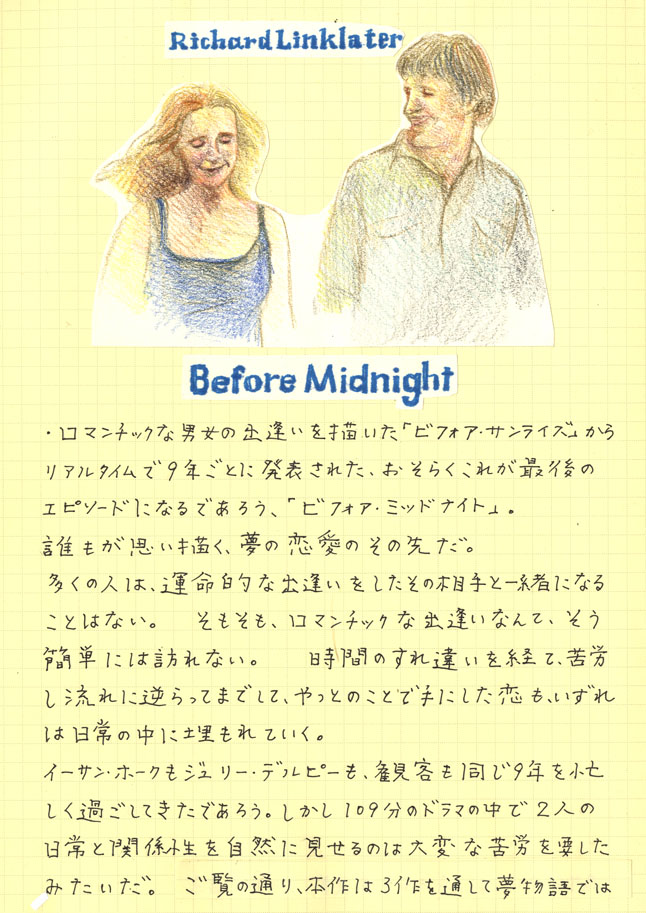 Richard Linklater
Before Midnight
・ロマンチックな男女の出逢いを描いた「ビフォア・サンライズ」から
リアルタイムで9年ごとに発表された、おそらくこれが最後の
エピソードになるであろう、「ビフォア・ミッドナイト」。
誰もが思い描く、夢の恋愛のその先だ。
多くの人は、運命的な出逢いをしたその相手と一緒になる
ことはない。 そもそも、ロマンチックな出逢いなんて、そう
簡単には訪れない。 時間のすれ違いを経て、苦労
し流れに逆らってまでして、やっとのことで手にした恋も、いずれ
は日常の中に埋もれていく。
イーサン・ホークもジュリー・デルピーも、観客も同じ9年を忙
しく過ごしてきたであろう。しかし109分のドラマの中で2人の
日常と関係性を自然に見せるのは大変な苦労を要した
みたいだ。 ご覧の通り、本作は3作を通して夢物語では